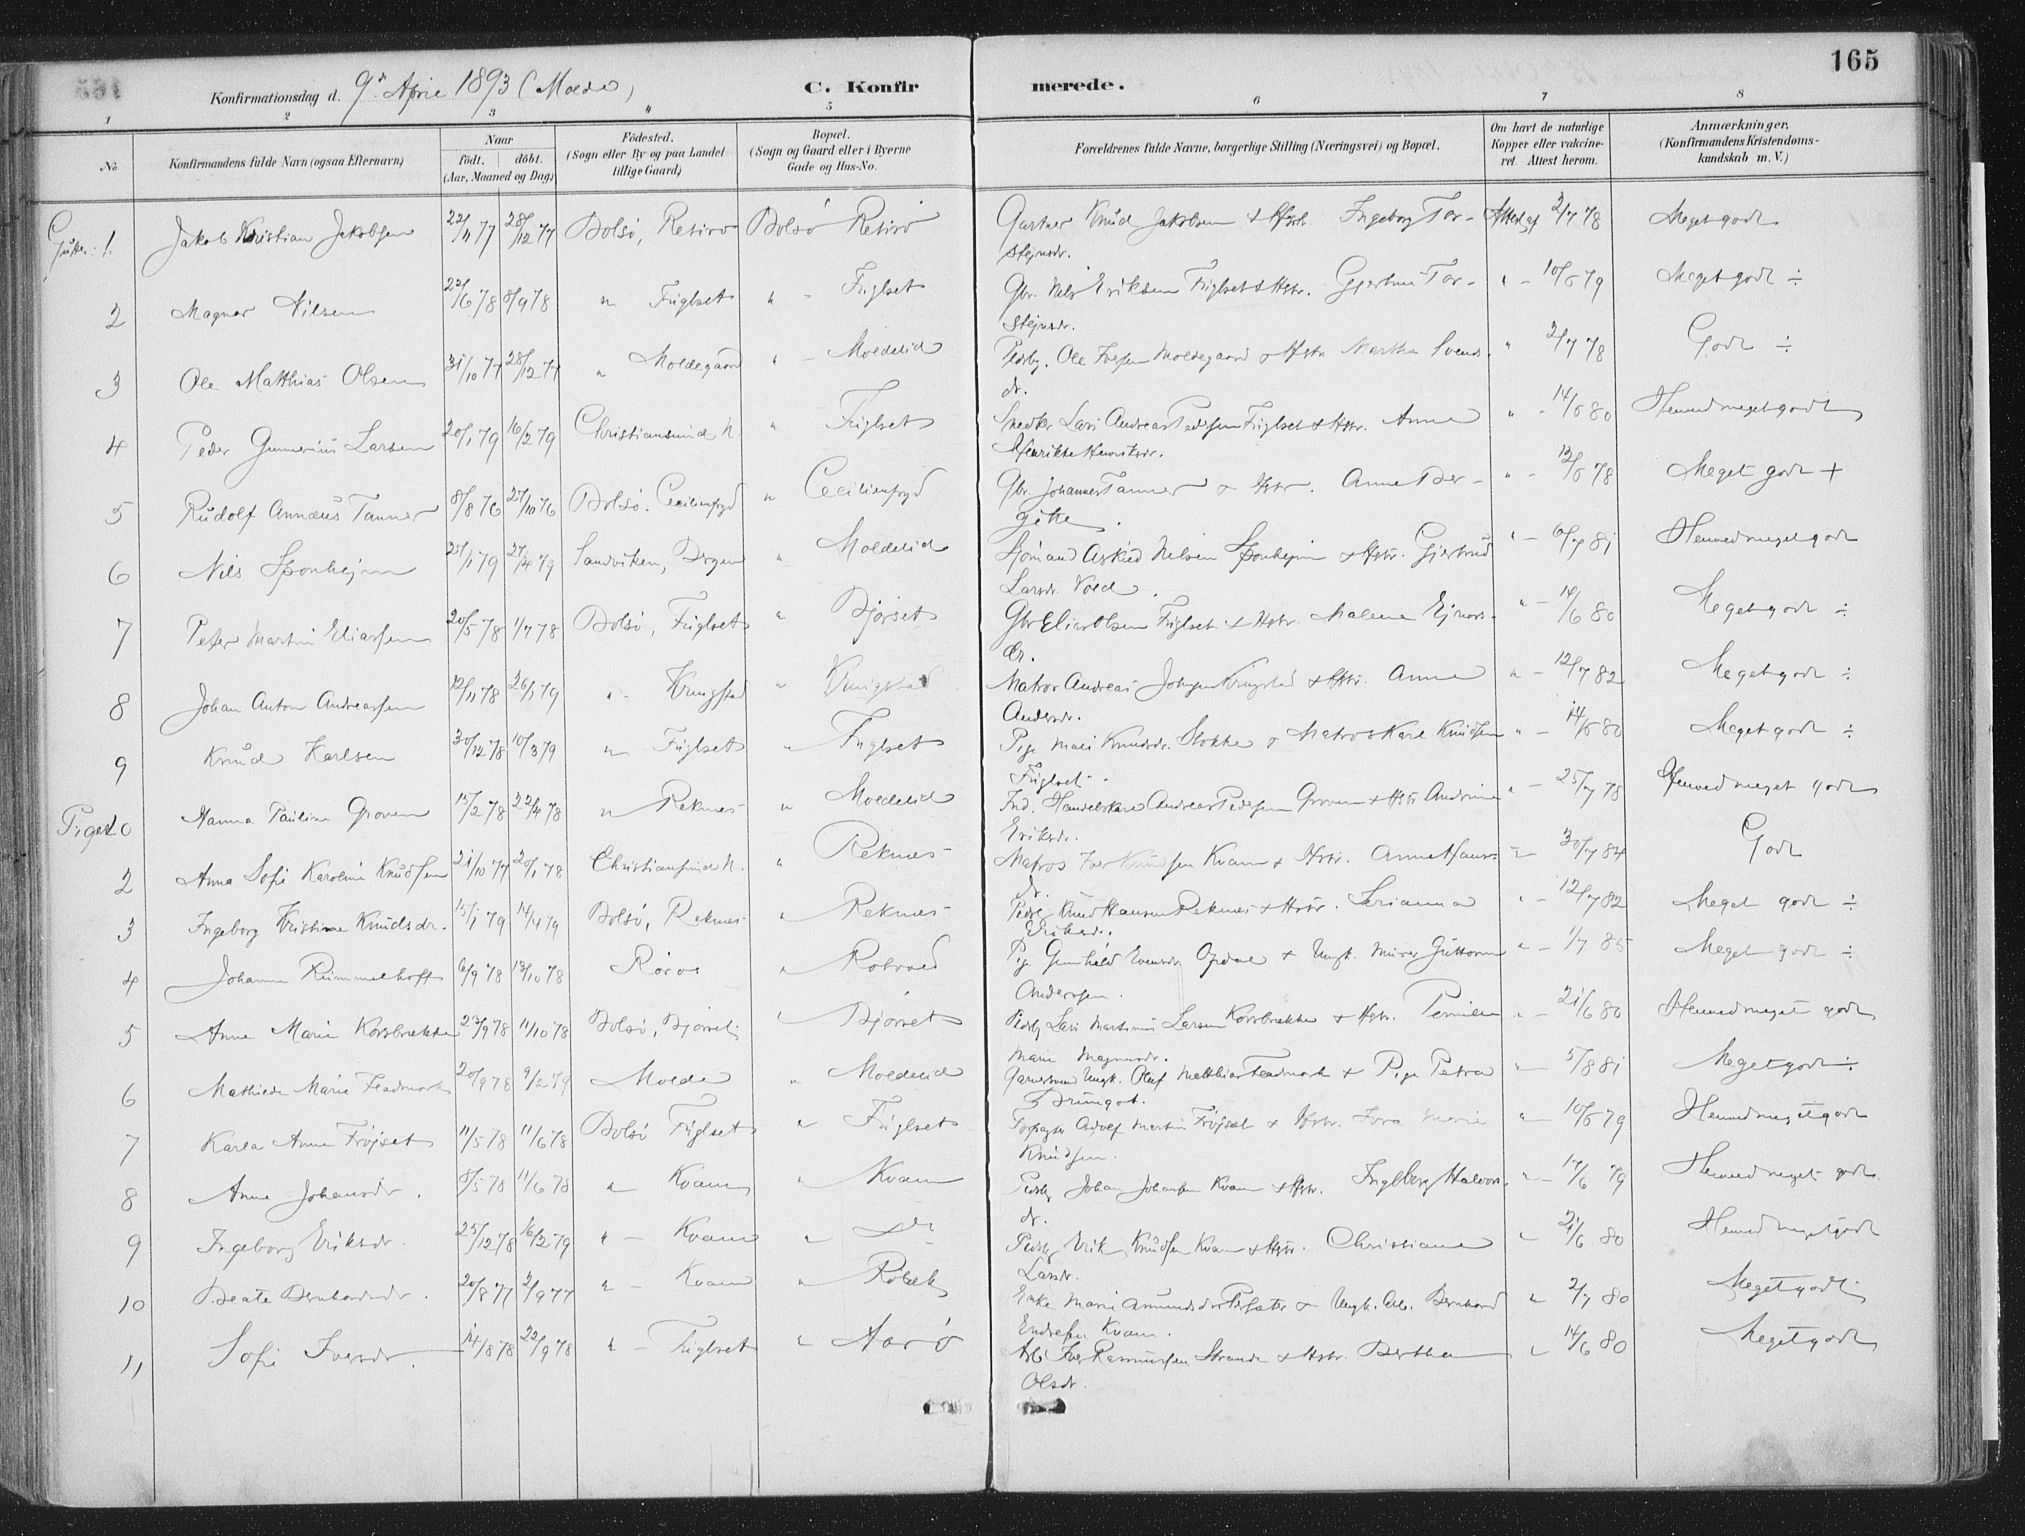 165
Konfirmationsdag d. 9de April 1893 (Molde)
C. Konfirmerede.
1 2 3 4 5 6 7 8
No
Konfirmandens fulde Navn (ogsaa Efternavn)
Naar födt. döbt. (Aar, Maaned og Dag)
Födested. (Sogn eller By og paa Landet tillige Gaard)
Bopæl. (Sogn og Gaard eller i Byerne Gade og Hus-No.
Forældrenes fulde Navne, borgerlige Stilling (Næringsvei) og Bopæl.
Om havt de naturlige Kopper eller vaccineret. Attest herom.
Anmærkninger. (Konfirmandens Kristendomskundskab m. V.)
Gutter: 1. Jakob Kristian Jakobsen 22/11 77 28/12 77 Bolsö, Retiro Bolsö Retiro Gartner Knud Jakobsen & Hstr. Ingeborg Torstejnsdr. Attest af 2/7 78 Meget godt
2 Magnar Nilsen 22/6 78 8/9 78 " Fuglset " - Fuglset Gbr. Nils Eriksen Fuglset & Hstr. Gjertrud Torstejnsdr. " - 10/6 79 Meget godt ÷
3 Ole Matthias Olsen 31/10 77 28/12 77 " Moldegaard " - Moldelid Pladsbg. Ole Iversen Moldegaard & Hstr. Martha Svendsdr. " 2/7 78 Godt ÷
4 Peder Gunnerius Larsen 20/1 79 16/2 79 Christianssund N. " Fuglset Snedker Lars Andreas Pedersen Fuglset & Hstr. Anne Henrikke Henriksdr. " - 14/6 80 Henved meget godt
5 Rudolf Annæus Tanner 8/8 76 27/10 76 Bolsö. Cecilienfryd " Cecilienfryd Gbr. Johannes Tanner & Hstr. Anne Bergitte. " - 12/6 78 Meget godt +
6 Nils Sponhejm 27/4 79 Sandviken, Bergen " Moldelid Sjömand Nilsen Sponhejm & Hstr. Gjertrud Larsdr. Vold. " - 81 Henved meget godt
7 Peter Martin Eliassen 20/5 78 1/7 78 Bolsö, Fuglset " Bjørset Gbr. Elias Olsen Fuglset & Hstr. Malene Ejnarsdr. " - 14/6 80 Meget godt ÷
8 Johan Anton Andreassen 12/11 78 26/1 79 " - Kringstad " Kringstad Matros Andreas Kringstad & Hstr. Anne Andersdr. " - 12/7 82 Meget godt ÷
9 Knud Karlsen 30/12 78 10/3 79 " Fuglset " Fuglset Pige Mali Knudsdr. Stokke & Matros Karl Knudsen Fuglset. " - 14/6 80 Meget godt ÷
Piger: 1 Hanna Pauline Groven 15/2 78 22/4 78 " Reknes " Moldelid Handelskar Andreas Pedersen Groven & Hstr. Andrine Eriksdr. " - 25/7 78 Henved meget godt
2 Anna Sofie Karoline Knudsen 21/10 77 20/1 78 Christianssund N. " Reknes Matros Iver Knudsen Kvam & Hstr. Anne Hansdr. " - 30/7 84 Godt
3 Ingeborg Kristine Knudsdr. 15/1 79 14/4 79 Bolsö, Reknes " Reknes Pladsbg. Knud Hansen Reknes & Hstr. Serianna Eriksdr. " - 12/7 82 Meget godt ÷
4 Johanne Rummelhoff 6/9 78 13/10 78 Röros " Pige Gunhild Evensdr. Opdal & Ungk. Murer Guttorm Andersen. " - 1/7 85 Meget godt ÷
5 Anne Marie Korsbrekke 23/9 78 11/10 78 Bolsö, Bjørset " Bjørset Pladsbg. Lars Martinius Larsen Korsbrekke & Hstr. Pernille Marie Magnusdr. " - 21/6 80 Henved meget godt
6 Mathilde Marie 20/9 78 9/2 79 Molde " Moldelid Ungk. Oluf Matthias & Pige Petra " - 5/8 81 Meget godt ÷
7 Karla Anne Fröjset 11/5 78 11/6 78 Bolsö Fuglset " Fuglset Adolf Martin Fröjset & Hstr. Marie Knudsen. " - 10/6 79 Henved meget godt
8 Anne Johansdr. 8/5 78 11/6 78 " Kvam " Kvam Pladsbg. Johan Johansen Kvam & Hstr. Ingeborg Halvorsdr. " - 17/6 79 Henved meget godt
9 Ingeborg Eriksdr. 25/12 78 16/2 79 " - Kvam " Do Pladsbg. Erik Knudsen Kvam & Hstr. Christiane Larsdr. " 21/6 80 Henved meget godt
10 Beate Bernhardsdr. 20/8 77 2/9 77 " - Kvam " Röbek Enke Marie Amundsdr. & Ungk. Arb. Bernhard Endresen Kvam. " 2/7 80 Meget godt
11 Sofie Iversdr. 14/8 78 22/9 78 " - Fuglset " Aarö Arb. Iver Rasmussen Strande & Hstr. Berthe Olsdr. " 14/6 80 Meget godt